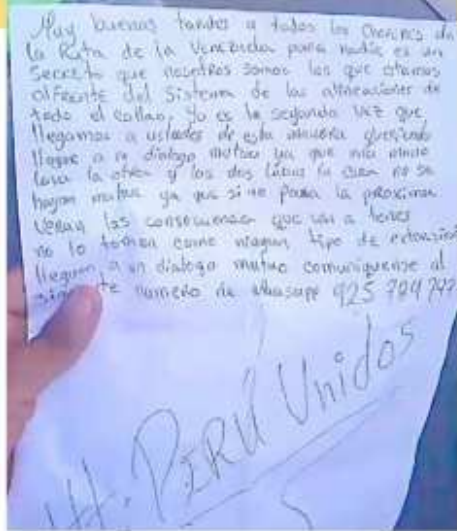 Muy buenas tardes a todos los choferes de
la Ruta de la Venezuela para nadie es un
secreto que nosotros somos los que estamos
al Frente del Sistema de las
todo el callao, ya es la segunda vez que
llegamos a ustedes de esta manera queriendo
llegar a un dialogo mutuo ya que una mano
lava la otra y los dos lavan la cara no se
hagan ya que si no para la proxima
veran las consecuencia que van a tener
no lo tomen como ningun tipo de extorsion
lleguen a un dialogo mutuo comuniquense al
numero de whasapp 925 709 747
PERÚ Unidos